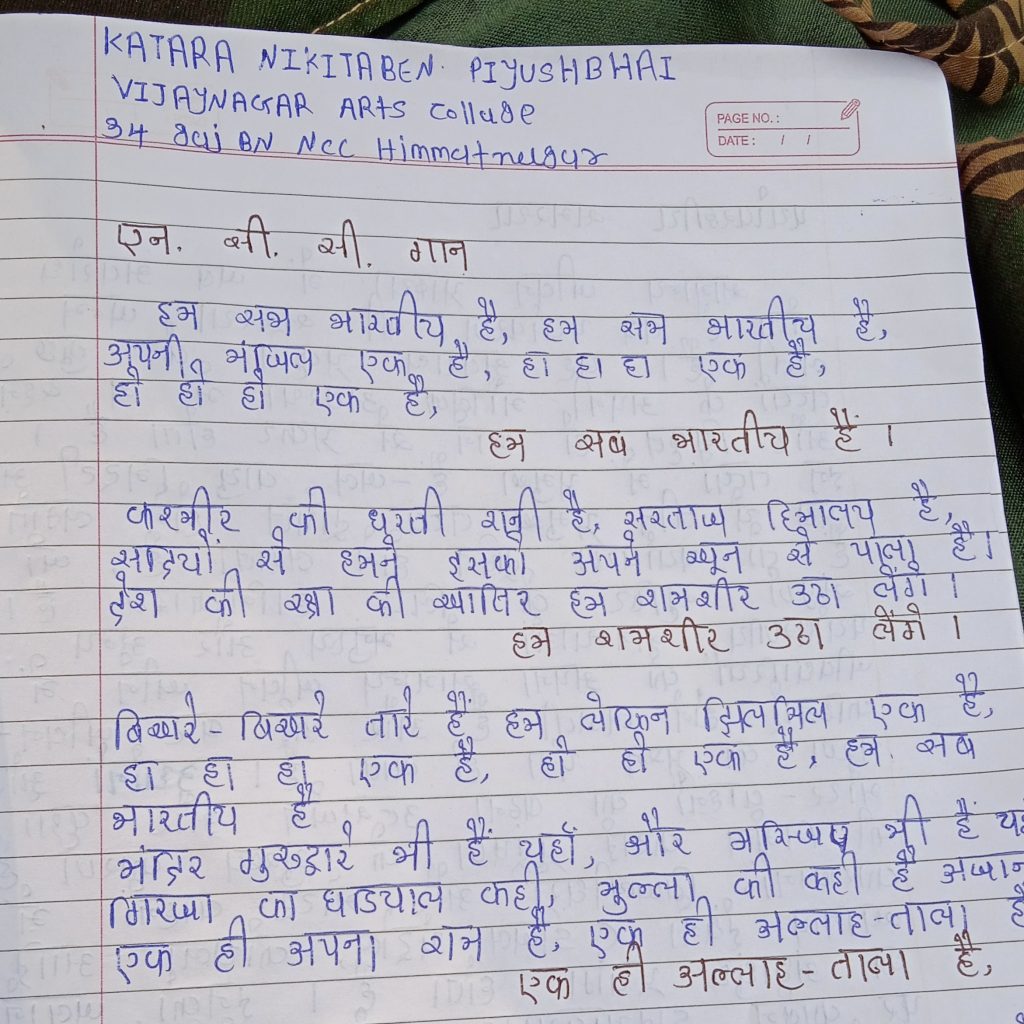 KATARA NIKITABEN. PIYUSHBHAI
VIJAYNAGAR ARTS Collage
34 Guj BN NCC Himmatnagar
PAGE NO.:
DATE: / /
एन. सी. सी. गान
हम सभ भारतीय है, हम सभ भारतीय है,
अपनी मंजिल एक है, हा हा हा एक है,
हो हो हो एक है,
हम सब भारतीय हैं ।
कश्मीर की धरती रानी है, सरताज हिमालय है,
सदियों से हमने इसको अपने खून से पाला है।
देश की रक्षा की खातिर हम शमशीर उठा लेंगे ।
हम शमशीर उठा लेंगे ।
बिखरे-बिखरे तारे हैं हम लेकिन झिलमिल एक है,
हा हा हा एक है, हो हो एक है, हम सब
भारतीय है
मंदिर गुरुद्वारे भी हैं यहाँ, और मस्जिद भी है यहा
गिरजा का घडियाल कही, मुल्ला की कही है अजान
एक ही अपना राम है, एक ही अल्लाह-ताला है
एक ही अल्लाह-ताला है,